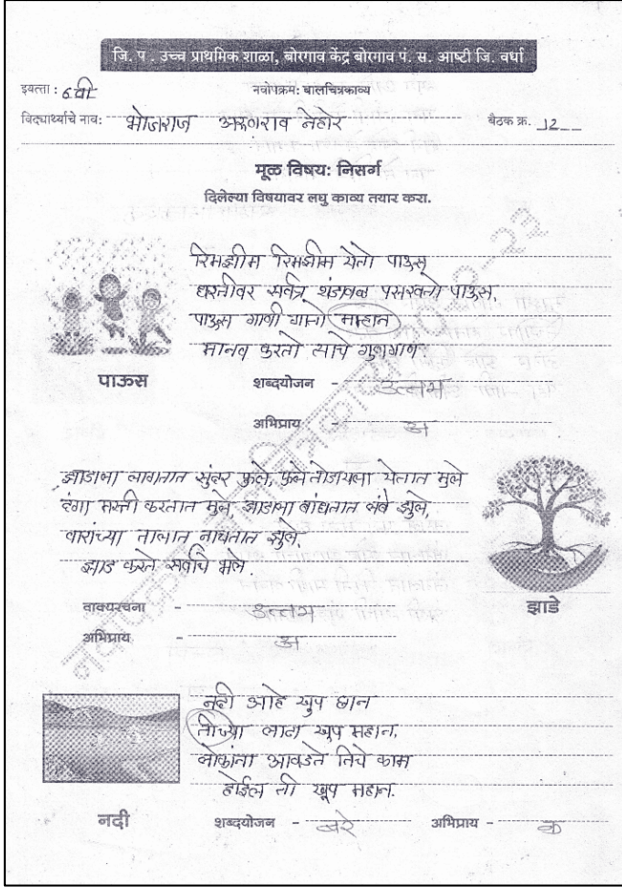 जि. प . उच्च प्राथमिक शाळा, बोरगाव केंद्र बोरगाव पं. स. आष्टी जि. वर्धा
इयत्ता : 6 वी नवोपक्रम: बालचित्रकाव्य
विद्यार्थ्याचे नाव: भोजराज अरुणराव नेहारे बैठक क्र. 12
मूळ विषय: निसर्ग
दिलेल्या विषयावर लघु काव्य तयार करा.
रिमझीम रिमझीम येतो पाऊस
धरतीवर सर्वत्र थंडावळ पसरवतो पाऊस,
पाऊस गाणी गातो माहान
मानव करतो त्याचे गुणगाण
पाऊस
शब्दयोजन - उत्तम
अभिप्राय - अ
झाडाला लागतात सुंदर फुले, फुले तोडायला येतात मुले
दंगा मस्ती करतात मुले, झाडाला बांधतात लंबे झुले,
वारांच्या तालात नाचतात झुले,
झाड करते सर्वांचे भले.
वाक्यरचना - उत्तम
अभिप्राय - अ
झाडे
नदी आहे खुप छान
तीच्या लाटा खुप महान,
लोकांना आवडते तिचे काम
होईल ती खूप महान.
नदी
शब्दयोजन - बरे अभिप्राय - क